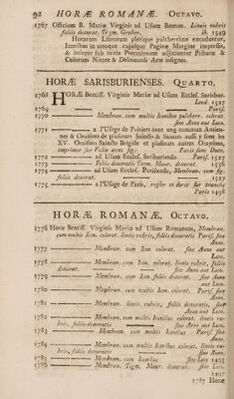 92 HORÆ ROMANÆ. OCTAVO.
1767 Officium B. Mariæ Virginis ad Usum Roman. Lineis rubris
foliis deaurat. Typm. Gruther. ib. 1549
Horarum Librorum plerique pulcherrime excuduntur,
Iconibus in
& Colorum Nitore & Delineandi Arte insignes.
HORÆ SARISBURIENSES. QUARTO.
1768 HORÆ Beatiss. Virginis Mariæ ad Usum Eccles. Sarisbur.
Lond. 1527
1769 Paris. 1527
1770 Membran. cum multis Iconibus pulcherr. colorat.
sine Anno aut Loco.
1771 a l'Usage de Poitiers avec
& Oraisons de plusieurs Saincts & Saintes aussi y sont les
XV. Oraisons Sainte Brigide et plusieurs autres Oraysons,
imprimè sur Velin avec fig. Paris sans Date.
1772 ad Usum Eccles. Sarisburiensis Paris. 1527
1773 Foliis deauratis Term. Maur. deaurat. 1536
1774 ad Usum Eccles. Parisiensis, Membran. cum fig.
foliis deaurat. 1527
1775 a l'Usage de Paris, regleè et dorè sur tranche
Paris 1498
HORÆ ROMANÆ. OCTAVO.
1776 Horæ Beatiss. Virginis Mariæ ad Usum Romanum, Membran.
cum multis Icon. colorat. lineis rubris, foliis deauratis Paris. sine
Anno.
1777 Membran. cum Icon. colorat. sine Anno aut
Loco.
1778 Membran. cum Icon. colorat. lineis rubris, foliis
deaurat. sine Anno aut Loco.
1779 Membran. cum Icon. colorat. foliis deaurat.
sine Anno aut Loco.
1780 Membran. cum multis Icon. colorat. Paris. sine
Anno.
1781 lineis rubris, foliis deauratis, sine Anno aut
Loco.
1782 Membran. cum multis Iconibus colorat. lineis
rubris, foliis deauratis sine Anno aut Loco.
1783 Membran. cum multis Iconibus Paris. sine
Anno.
1784 Membran. cum multis Iconibus colorat. lineis rubris,
foliis deauratis sine Anno.
1785 Membran. cum Iconibus, sine Anno aut Loco.
1786 Membran. Tegm. Maur. deauratis
1497
1787 Horæ